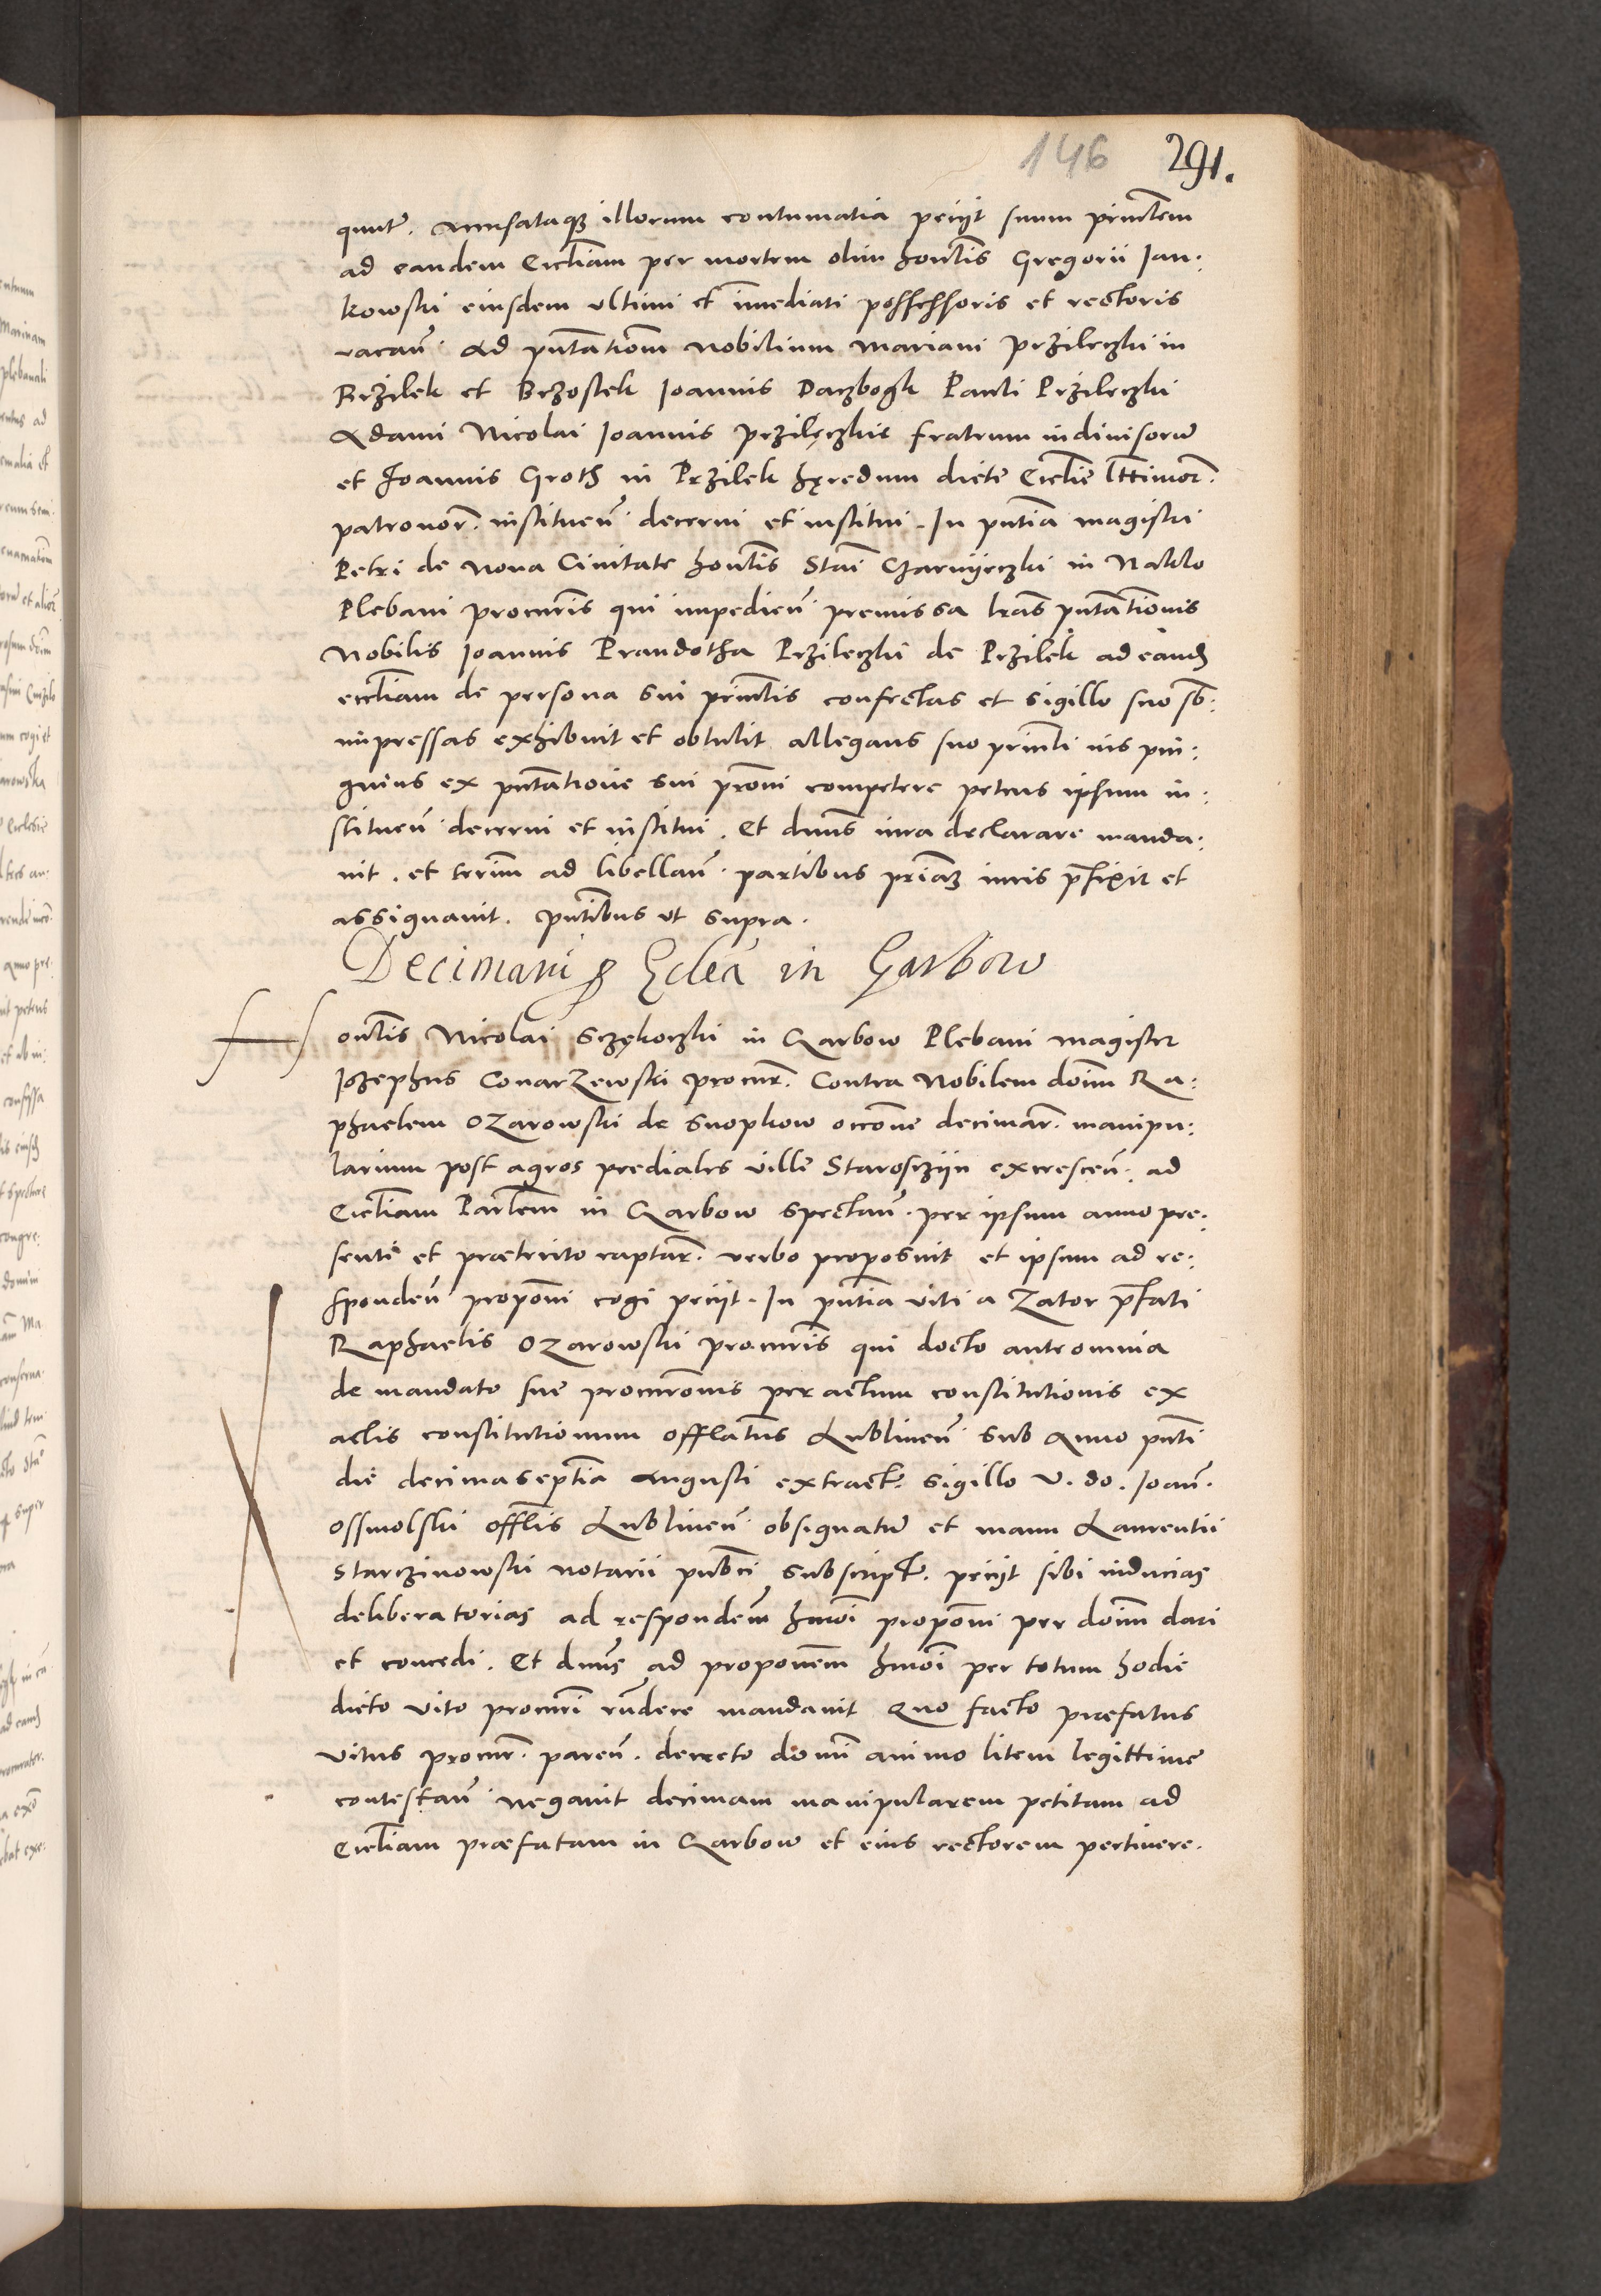 146 291.
quntr. accusataq3 illorum contumatia peciit suum princlem
ad eandem Eccliam per mortem olim honlis Gregorii Ian:
kowski eiusdem ultimi et imediati possessoris et rectoris
vacan. ad pntationem nobilium Mariani Przileczki in
Przilek et Brzostek Joannis Daczbogk Pauli Przileczki
Adami Nicolai Joannis Przileczkie fratrum indivisorum
et Joannis Groth in Przilek hęredum dicte Ecclie lttimor.
patronor. instituen. decerni et institui. In pntia magistri
Petri de Nova Civitate honlis Stai Czarnijeczki in Naklo
Plebani procuris qui impedien. premissa lras pntationis
Nobilis Joannis Prandotha Przileczki de Przilek ad eand
eccliam de persona sui princlis confectas et sigillo suo sb:
impressas exhibuit et obtulit allegans suo princli ius pin:
guius ex pntatione sui proni competere petens ipsum in:
stituen. decerni et institui. Et dnus iura declarare manda:
vit. et terim ad libellan. partibus priam iuris pfixit et
assignavit. pntibus ut supra.
Decimarum p Eclea in Garbow
Honlis Nicolai Sczękoczki in Garbow Plebani magister
Josephus Conarzewski procur. Contra Nobilem doim Ra:
phaelem Ozarowski de Snopkow occone decimar. manipu:
larium post agros prediales ville Starosczijn excrescen. ad
Eccliam Parlem in Garbow spectan. per ipsum anno pre:
senti et præterito raptar. verbo proposuit et ipsum ad re:
sponden. proponi cogi peciit. In pntia Viti a Zator pfati
Raphaelis Ozarowski procuris qui docto ante omnia
de mandato sue procuronis per actum constitutionis ex
actis constitutionum offlatus Lublinen. sub Anno pnti
die decimaseptia Augusti extract. sigillo V. do. Joan.
Ossmolski offlis Lublinen. obsignatum et manu Laurentii
Starczinowski notarii publici subscript. peciit sibi inducias
deliberatorias ad respondem hmoi proponi per doim dari
et concedi. Et dnus ad proponem hmoi per totum hodie
dicto Vito procuri rndere mandavit Quo facto præfatus
Vitus procur. paren. decreto domi animo litem legittime
contestan. negavit decimam manipularem petitam ad
Eccliam præfatam in Garbow et eius rectorem pertinere.